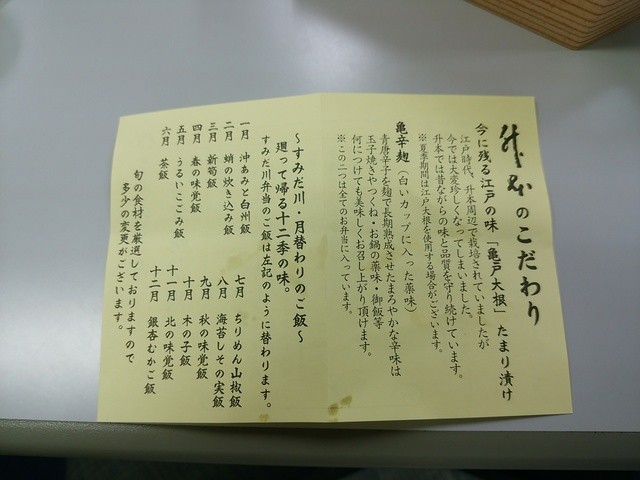 升本のこだわり
今に残る江戸の味「亀戸大根」たまり漬け
江戸時代、升本周辺で栽培されていましたが
今では大変珍しくなってしまいました。
升本では昔ながらの味と品質を守り続けています。
※夏季期間は江戸大根を使用する場合がございます。
亀辛麹（白いカップに入った薬味）
青唐辛子を麹で長期熟成させたまろやかな辛味は
玉子焼きやつくね・お鍋の薬味・御飯等
何につけても美味しくお召し上がり頂けます。
※この二つは全てのお弁当に入っています。
～すみだ川・月替わりのご飯～
廻って帰る十二季の味。
すみだ川弁当のご飯は左記のように替わります。
一月　沖あみと白州飯
二月　蛸の炊き込み飯
三月　新筍飯
四月　春の味覚飯
五月　うるいこごみ飯
六月　茶飯
七月　ちりめん山椒飯
八月　海苔しその実飯
九月　秋の味覚飯
十月　木の子飯
十一月　北の味覚飯
十二月　銀杏むかご飯
旬の食材を厳選しておりますので
多少の変更がございます。